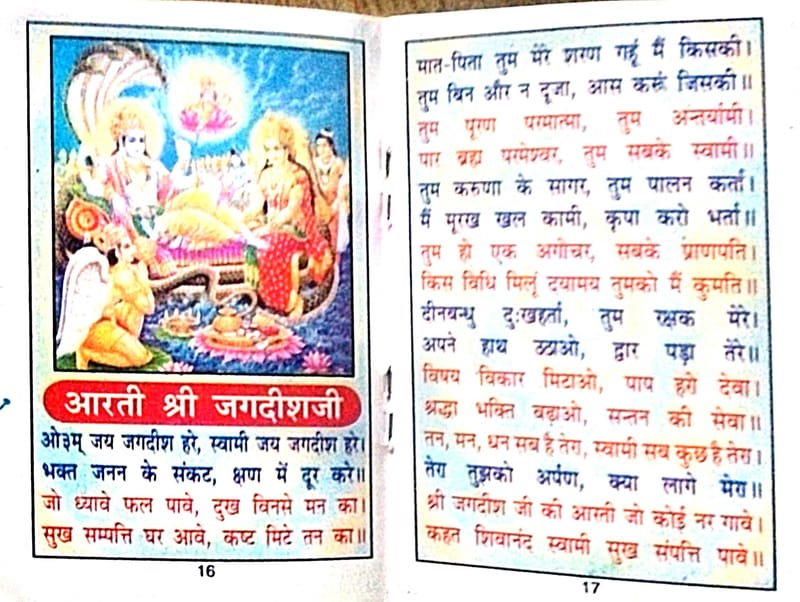 आरती श्री जगदीशजी
ओ३म् जय जगदीश हरे, स्वामी जय जगदीश हरे।
भक्त जनन के संकट, क्षण में दूर करे॥
जो ध्यावे फल पावे, दुख विनसे मन का।
सुख सम्पत्ति घर आवे, कष्ट मिटे तन का॥
16
मात-पिता तुम मेरे शरण गहूं मैं किसकी।
तुम बिन और न दूजा, आस करूं जिसकी॥
तुम पूरण परमात्मा, तुम अन्तर्यामी।
पार ब्रह्म परमेश्वर, तुम सबके स्वामी॥
तुम करुणा के सागर, तुम पालन कर्ता।
मैं मूरख खल कामी, कृपा करो भर्ता॥
तुम हो एक अगोचर, सबके प्राणपति।
किस विधि मिलूं दयामय तुमको मैं कुमति॥
दीनबन्धु दुःखहर्ता, तुम रक्षक मेरे।
अपने हाथ उठाओ, द्वार पड़ा तेरे॥
विषय विकार मिटाओ, पाप हरो देवा।
श्रद्धा भक्ति बढ़ाओ, सन्तन की सेवा॥
तन, मन, धन सब है तेरा, स्वामी सब कुछ है तेरा।
तेरा तुझको अर्पण, क्या लागे मेरा॥
श्री जगदीश जी की आरती जो कोई नर गावे।
कहत शिवानंद स्वामी सुख संपत्ति पावे॥
17